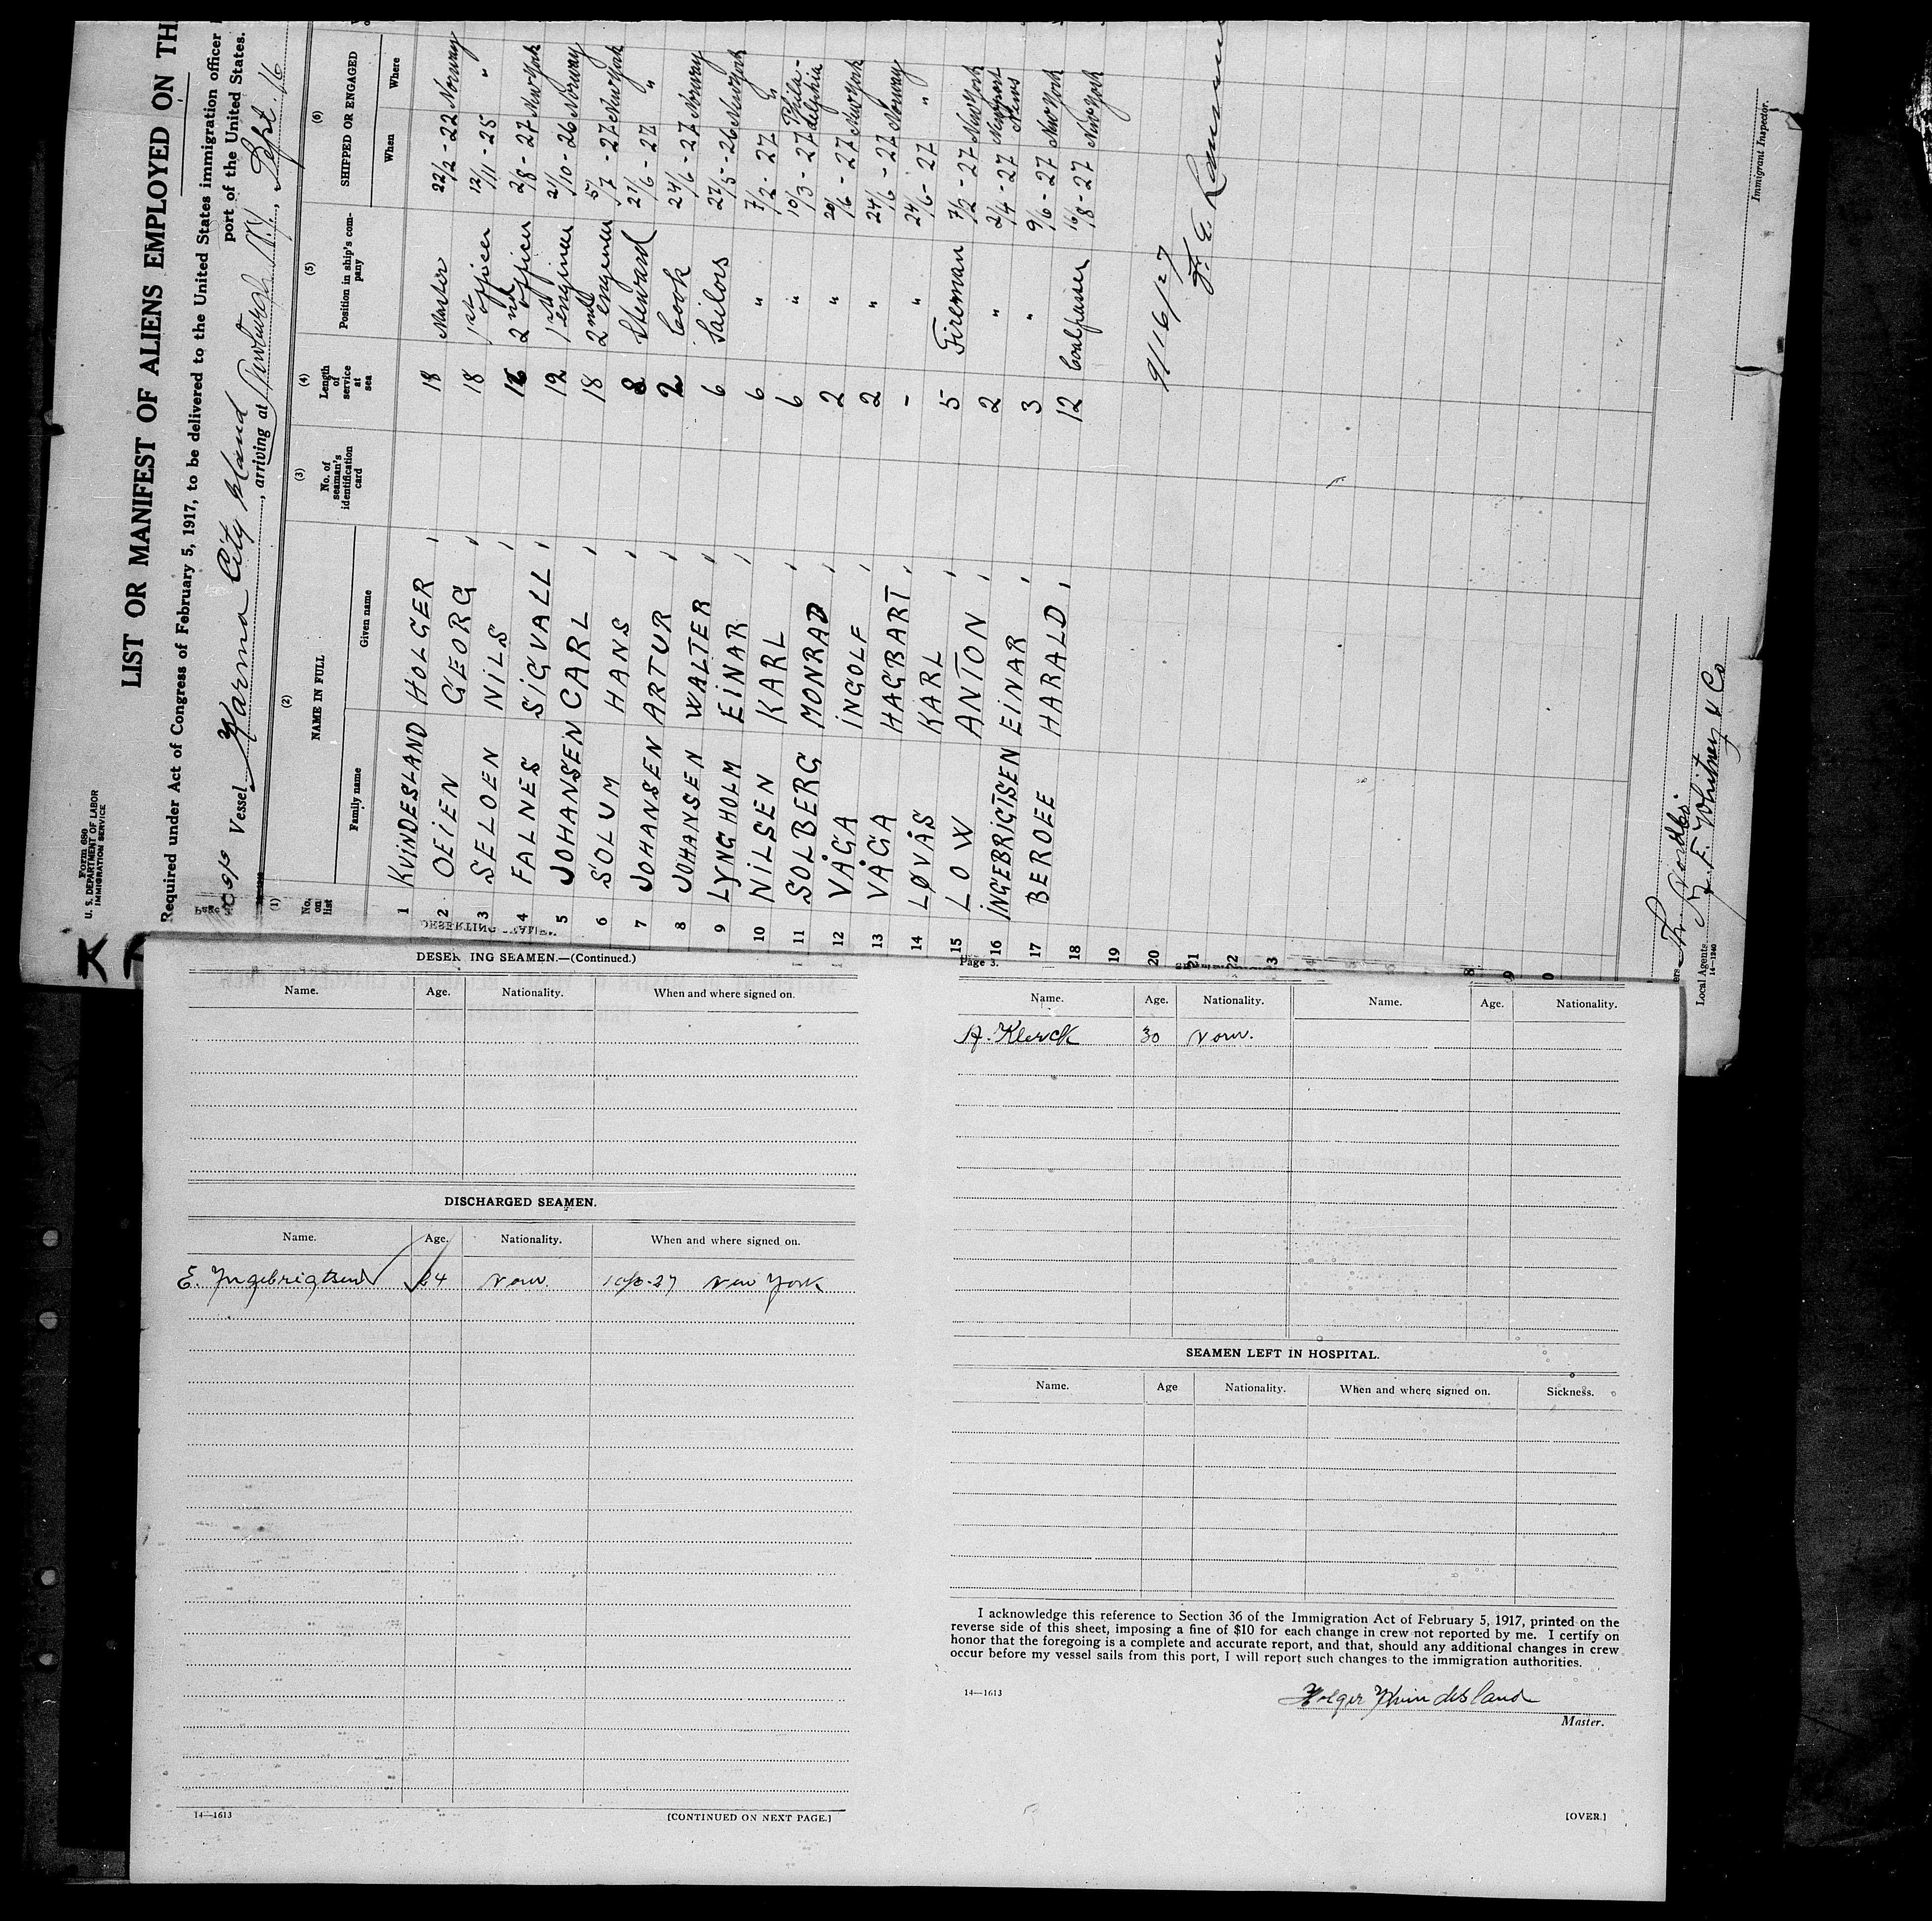 Form 680
U. S. DEPARTMENT OF LABOR
IMMIGRATION SERVICE
LIST OR MANIFEST OF ALIENS EMPLOYED ON TH
Required under Act of Congress of February 5, 1917, to be delivered to the United States immigration officer
port of the United States.
Vessel Karmo City Island, arriving at Newburgh N.Y., Sept. 16
(1) (2) (3) (4) (5) (6)
No. on list NAME IN FULL No. of seaman's identification card Length of service at sea Position in ship's company SHIPPED OR ENGAGED
Family name Given name When Where
1 KVINDESLAND HOLGER 18 Master 22/2 - 22 Norway
2 OEIEN GEORG 18 1st officer 12/11 - 25 "
3 SELOEN NILS 16 2nd officer 2/8 - 27 New York
4 FALNES SIGVALL 12 1st enginer 21/10 - 26 Norway
5 JOHANSEN CARL 18 2nd engener 5/7 - 27 New York
6 SOLUM HANS 8 Steward 21/6 - 27 "
7 JOHANSEN ARTUR 2 Cook 24/6 - 27 Norway
8 JOHANSEN WALTER 6 Sailors 27/5 - 26 New York
9 LYNGHOLM EINAR 6 " 7/2 - 27 "
10 NILSEN KARL 6 " 10/3 - 27 Philadelphia
11 SOLBERG MONRAD 2 " 20/6 - 27 New York
12 VÅGA INGOLF 2 " 24/6 - 27 Norway
13 VÅGA HAGBART - " 24/6 - 27 "
14 LØVÅS KARL 5 Fireman 7/2 - 27 New York
15 LOW ANTON 2 " 2/4 - 27 Newport News
16 INGEBRIGTSEN EINAR 3 " 9/6 - 27 New York
17 BEROEE HARALD 12 Coalpasser 16/8 - 27 New York
18
19
20
21
22
23
9/16/27
Immigrant Inspector.
Local Agents J. F. Whitney & Co
14—1240
DESER ING SEAMEN.—(Continued.)
Name. Age. Nationality. When and where signed on.
DISCHARGED SEAMEN.
Name. Age. Nationality. When and where signed on.
E. Ingebrigtsen 24 Norw. 10/6-27 New York
14—1613 [CONTINUED ON NEXT PAGE.]
Page 3.
Name. Age. Nationality. Name. Age. Nationality.
A. Klerck 30 Norw.
SEAMEN LEFT IN HOSPITAL.
Name. Age Nationality. When and where signed on. Sickness.
I acknowledge this reference to Section 36 of the Immigration Act of February 5, 1917, printed on the
reverse side of this sheet, imposing a fine of $10 for each change in crew not reported by me. I certify on
honor that the foregoing is a complete and accurate report, and that, should any additional changes in crew
occur before my vessel sails from this port, I will report such changes to the immigration authorities.
14—1613
Holger Kvindesland
Master.
[OVER.]